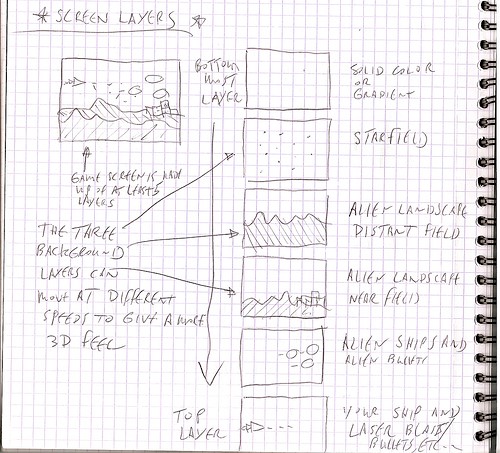 * SCREEN LAYERS *
BOTTOM
MOST
LAYER
SOLID COLOR
OR
GRADIENT
STARFIELD
GAME SCREEN IS MADE
UP OF AT LEAST 5
LAYERS
THE THREE
BACKGROUND
LAYERS CAN
MOVE AT DIFFERENT
SPEEDS TO GIVE A MORE
3D FEEL
ALIEN LANDSCAPE
DISTANT FIELD
ALIEN LANDSCAPE
NEAR FIELD
ALIEN SHIPS AND
ALIEN BULLETS
TOP
LAYER
YOUR SHIP AND
LASER BLASTS/
BULLETS, ETC...